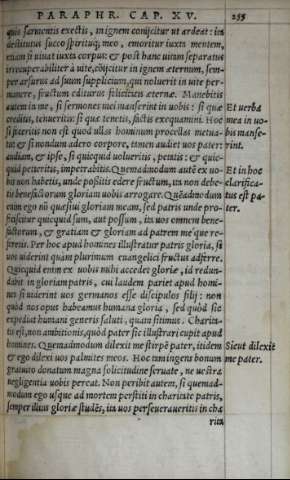 PARAPHR. CAP. XV. 255
quis sarmentis exectis, in ignem conijcitur ut ardeat: ita
destitutus succo spirituq́; meo, emoritur iuxta mentem,
etiam si uiuat iuxta corpus: & post hanc uitam separatus
irrecuperabiliter à uite, cōijcitur in ignem æternum, sem-
per arsurus ad suum supplicium, qui noluerit in uite per-
manere, fructum editurus felicitatis æternæ. Manebitis
autem in me, si sermones mei manserint in uobis: si quæ
creditis, tenueritis: si quæ tenetis, factis exequamini. Hoc
si feceritis non est quod ullas hominum procellas metua-
tis: & si nondum adero corpore, tamen audiet uos pater:
audiam, & ipse, si quicquid uolueritis, petitis: & quic-
quid petieritis, impetrabitis. Quemadmodum autē ex uo-
bis non habetis, unde possitis edere fructum, ita non debe-
tis beneficiorum gloriam uobis arrogare. Quēadmodum
enim ego nō quæsiui gloriam meam, sed patris unde pro-
ficiscitur quicquid sum, aut possum, ita uos omnem bene-
factorum, & gratiam & gloriam ad patrem me'que re-
feretis. Per hoc apud homines illustratur patris gloria, si
uos uiderint quàm plurimum euangelici fructus adferre.
Quicquid enim ex uobis mihi accedet gloriæ, id redun-
dabit in gloriam patris, cui laudem pariet apud homi-
nes si uiderint uos germanos esse discipulos filij: non
quòd nos opus habeamus humana gloria, sed quòd sic
expediat humani generis saluti, quam sitimus. Charita-
tis est, non ambitionis, quòd pater sic illustrari cupit apud
homines. Quemadmodum dilexit me stirpē pater, itidem
& ego dilexi uos palmites meos. Hoc tam ingens bonum
gratuito donatum magna solicitudine seruate, ne uestra
negligentia uobis pereat. Non peribit autem, si quemad-
modum ego usque ad mortem perstiti in charitate patris,
semper illius gloriæ studēs, ita uos perseuerauеritis in cha
rita
Et uerba
mea in uo-
bis manse-
rint.
Et in hoc
clarifica-
tus est pa-
ter.
Sicut dilexit
me pater.